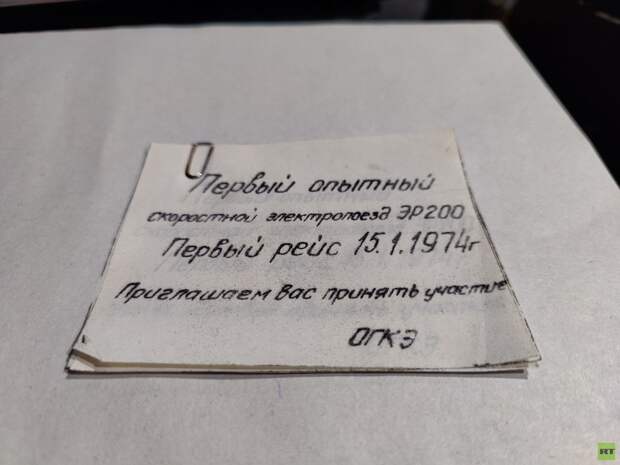 Первый опытный
скоростной электропоезд ЭР200
Первый рейс 15.1.1974г
Приглашаем Вас принять участие
ОГКЭ
RT